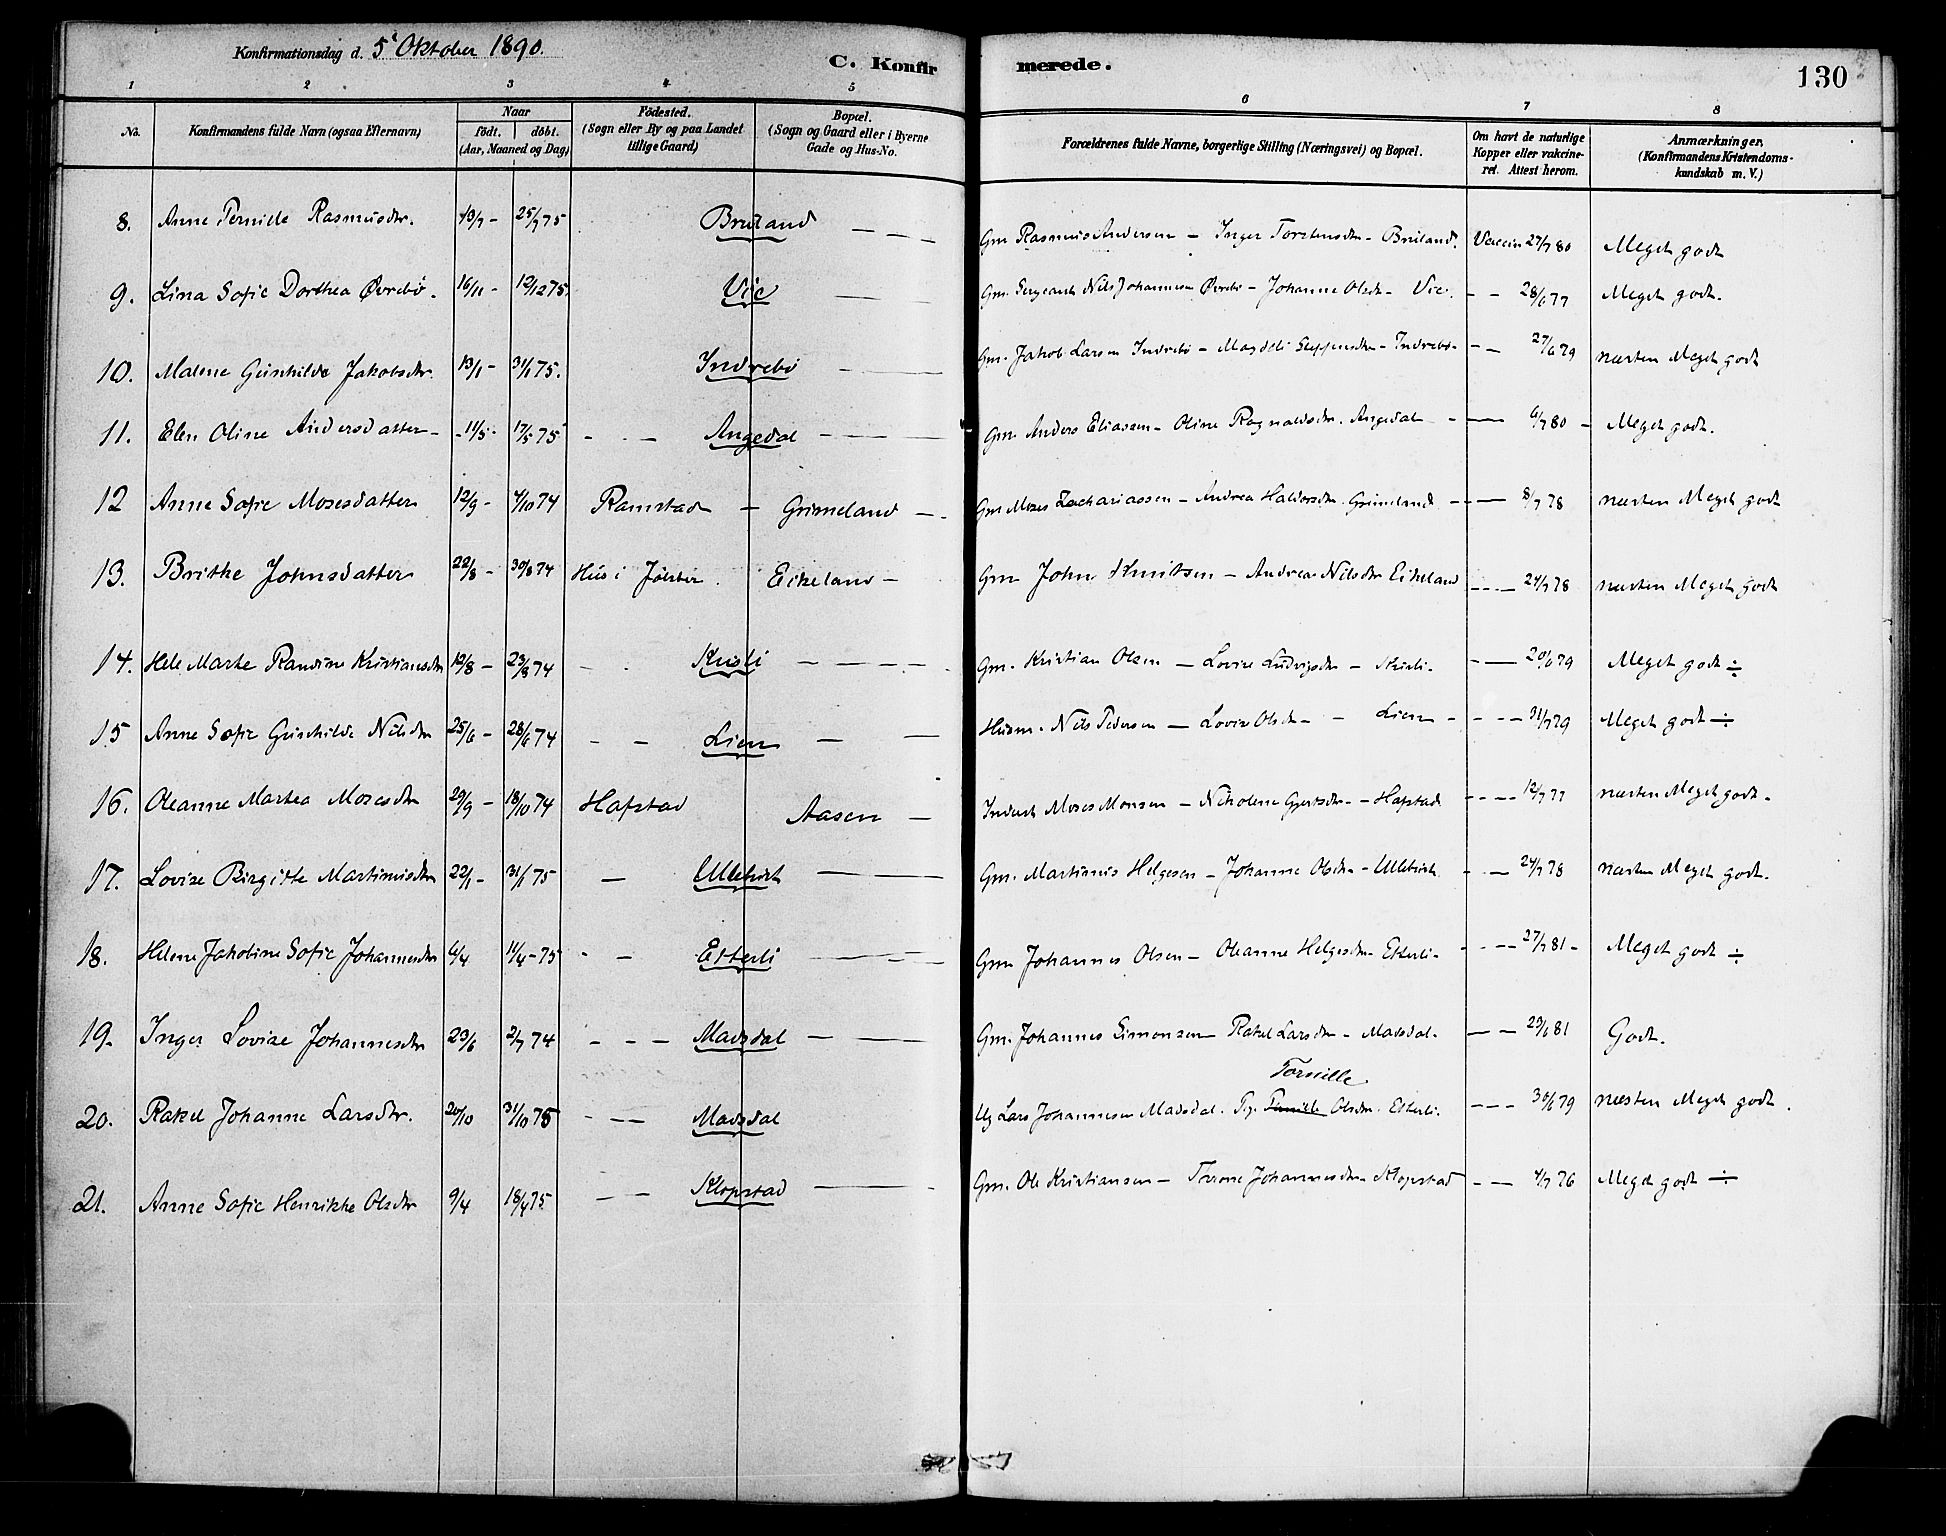 Konfirmationsdag d. 5te Oktober 1890.
C. Konfirmerede.
130
1 2 3 4 5 6 7 8
No. Konfirmandens fulde Navn (ogsaa Efternavn) Naar født. døbt. (Aar, Maaned og Dag) Födested. (Sogn eller By og paa Landet tillige Gaard) Bopæl. (Sogn og Gaard eller i Byerne Gade og Hus-No. Forældrenes fulde Navne, borgerlige Stilling (Næringsvei) og Bopæl. Om havt de naturlige Kopper eller vakcineret. Attest herom. Anmærkninger, (Konfirmandens Kristendomskundskab m. V.)
8. Anne Pernille Rasmusdtr. 13/7 - 25/7 75 Bruland — — — Gm Rasmus Andersen - Inger Torstensdtr - Bruland. Vaccin 27/7 80 Meget godt
9. Lina Sofie Dorthea Øvrebö. 16/11 - 12/12 75 Vie — — Gm. Sergeant Nils Johannesen Øvrebö - Johanne Olsdtr - Vie. - - 28/6 77 Meget godt.
10. Malene Gurihilde Jakobsdtr. 13/1 - 31/1 75. Indrebö — — — Gm. Jakob Larsen Indrebö - Magdeli Seppensdtr - Indrebö - - - 27/6 79 næsten Meget godt
11. Elen Oline Andersdatter - 11/5 - 17/5 75 - - — Angedal — — — Gm. Anders Eliassen - Oline Ragnaldsdtr. Angedal - - — 6/7 80 - Meget godt.
12 Anne Sofie Mosesdatter 12/9 - 4/10 74 Ramstad — Grimeland — Gm Moses Zachariassen - Andrea Haldorsdtr. Grimeland - - — 8/7 78 næsten Meget godt
13. Brithe Johnsdatter 22/8 - 30/8 74 Hus i Jölster. Eikeland — Gm John Knutsen - Andrea Nilsdtr Eikeland - - - 24/7 78 næsten Meget godt
14. Hele Marte Randine Kristiansdtr 19/8 - 23/8 74 - - Kusli — — — Gm. Kristian Olsen — Lovise Ludvigsdtr - Kusli. - — 20/6 79 Meget godt ÷
15 Anne Sofie Gurihilde Nilsdtr 25/6 - 28/6 74 — — Lien — — Husm. Nils Pedersen — Lovise Olsdtr - - Lien - - - - 31/7 79 Meget godt ÷
16. Oleanne Martea Mosesdtr 29/9 - 18/10 74 Hafstad Aasen — Inderst Moses Monsen - Nikolene Gjertsdtr - Hafstad. - - - 12/7 77 næsten Meget godt.
17. Lovise Birgitte Martinusdtr 22/1 - 31/1 75 — Ulletveit — — — Gm. Martinus Helgesen - Johanne Olsdtr - Ulletveit. - - — 24/7 78 næsten Meget godt.
18. Helene Jakobine Sofie Johannesdtr 6/4 11/4 - 75 - - Etterli — — — Gm. Johannes Olsen - Oleanne Helgesdtr - Etterli. - - - 27/7 81 - Meget godt ÷
19. Inger Lovise Johannesdtr 23/6 2/7 74 - - - Madsdal — — — Gm. Johannes Simonsen - Rakel Larsdtr - Madsdal. — — 29/6 81 Godt.
Torsille
20. Rakel Johanne Larsdtr. 20/10 31/10 75 - — — Madsdal Ug Lars Johannesen Madsdal. Pig. Olsdtr. Etterli. - - - 30/6 79 næsten Meget godt.
21. Anne Sofie Henrikke Olsdtr 9/4 18/4 75. — — Klopstad — — Gm. Ole Kristiansen — Thrine Johannesdtr - Klopstad - - - 4/7 76 Meget godt ÷